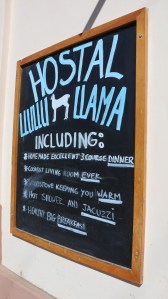 HOSTAL
LLULLU LLAMA
INCLUDING:
HOMEMADE EXCELLENT 3 COURSE DINNER
COSIEST LIVING ROOM EVER
WOODSTOVE KEEPING YOU WARM
HOT SHOWER AND JACUZZI
HEALTHY BIG BREAKFAST